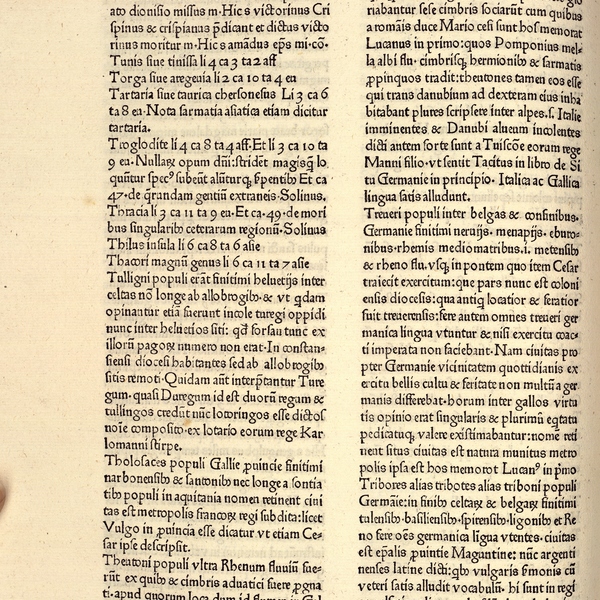 ato dionisio missus m·Hic s victorinus Cri
spinus & crispianus p̄dicant et dictus victo
rinus moritur m·Hic s amādus ep̄s mi·co·
Tunis siue tinissa li 4 ca 3 ta 2 aff
Torga siue aregenia li 2 ca 10 ta 4 eu
Tartaria siue taurica chersonesus Li 3 ca 6
ta 8 eu·Nota sarmatia asiatica etiam dicitur
tartaria.
Troglodite li 4 ca 8 ta 4 aff·Et li 3 ca 10 ta
9 eu·Nullaꝝ opum dn̄i:stridēt magisꝗ lo
quūtur specꝰ subeūt alūturꝗ; ẜpentiꝫ Et ca
47·de q̄rundam gentiū extraneis·Solinus.
Thracia li 3 ca 11 ta 9 eu·Et ca·49·de mori
bus singulariꝫ ceterarum regionū·Solinus
Thilus insula li 6 ca 8 ta 6 asie
Thacori magnū genus li 6 ca 11 ta 7 asie
Tulligni populi erāt finitimi heluetijs inter
celtas nō longe ab allobrogiꝫ·& vt q̄dam
opinantur etiā fuerunt incole turegi oppidi
nunc inter heluetios siti: qđ forsan tunc ex
illorū pagoꝝ numero non erat·In constan-
siensi diocesi habitantes sed ab allobrogiꝫ
sitis remoti·Quidam aūt interp̄tantur Ture
gum·quasi Duregum id est duorū regum &
tullingos credūt nūc lotoringos esse dictos
noīe composito·ex lotario eorum rege Kar
lomanni stirpe.
Tholosates populi Gallie ꝓuincie finitimi
narbonensiꝫ & santoniꝫ nec longe a sontia
tiꝫ populi in aquitania nomen retinent ciui
tas est metropolis francoꝝ regi subdita:licet
Vulgo in ꝓuincia esse dicatur vt etiam Ce-
sar ipse descripsit.
Theutoni populi vltra Rhenum fluuiū fue-
rūt ex quiꝫ & cimbris aduatici fuere ꝓgna
riabantur sese cimbris sociarūt cum quibus
a romāis duce Mario cesi sunt hos memorat
Lucanus in primo:quos Pomponius mel-
la albi flu·cimbrisꝗ; hermioniꝫ & sarmatis
ꝓpinquos tradit:theutones tamen eos esse
qui trans danubium ad dexteram eius inha
bitabant plures scripsere inter alpes.s. Italie
imminentes & Danubi alueum incolentes
dicti autem sorte sunt a Tuiscōe eorum rege
Manni filio·vt sentit Tacitus in libro de Si
tu Germanie in principio· Italica ac Gallica
lingua satis alludunt.
Treueri populi inter belgas & confinibus.
Germanie finitimi neruijs· menapijs· eburo-
nibus·rhemis mediomatribus.i. metensiꝫ
& rheno flu·vsꝗ; in pontem quo item Cesar
traiecit exercitum:que pars nunc est coloni
ensis diocesis:qua antiꝗ locatior & feratior
fuit treuerensis:fere autem omnes treueri ger
manica lingua vtuntur & nisi exercitu coac-
ti imperata non faciebant·Nam ciuitas pro
pter Germanie vicinitatem quottidianis ex
ercitu bellis cultu & feritate non multū a ger
manis differebat·horum inter gallos virtu
tis opinio erat singularis & plurimū eq̄tatu
pedicatuꝗ; valere existimabantur:nome reti
nent situs ciuitas est natura munitus metro
polis ipsa est hos memorat Lucanꝰ in p̄mo
Tribores alias tribotes alias triboni populi
Germāie:in finiꝫ celtaꝝ & belgaꝝ finitimi
tulensiꝫ·basiliensiꝫ·spirensiꝫ·ligoniꝫ et Re
no fere oēs germanica ligua vtentes· ciuitas
est ep̄alis ꝓuintie Maguntine: nūc argenti
nenses latine dicti:qꝫ vulgaris ẜmonis cū
veteri satis alludit vocabulū· hi sunt in regi